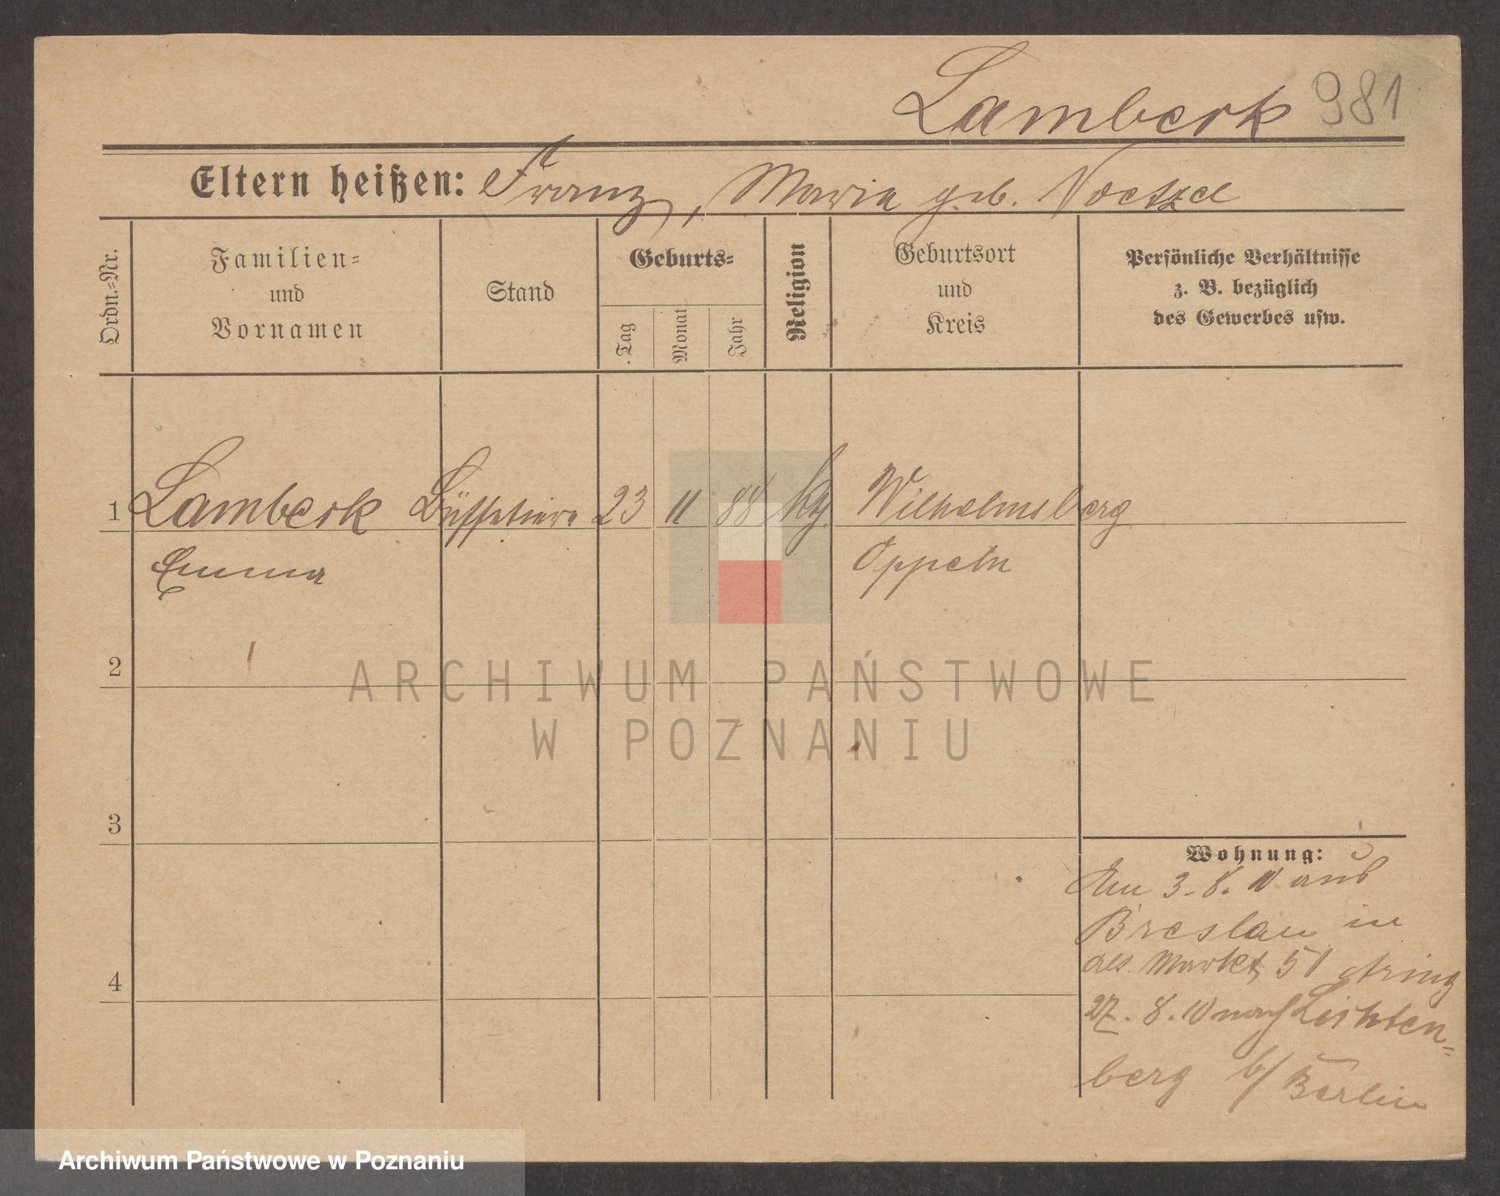 Lamberk 981
Eltern heißen: Franz, Maria geb. Noetzel
Ordn.-Nr.
Familien-
und
Vornamen
Stand
Geburts-
Tag
Monat
Jahr
Religion
Geburtsort
und
Kreis
Persönliche Verhältnisse
z. B. bezüglich
des Gewerbes usw.
1 Lamberk Büffetiere 23 11 88 kg Wilhelmsberg
Emma Oppeln
2
3
4
Wohnung:
Am 3.8.10 aus
Breslau in
Markt 51
27.8.10 nach Lichten-
berg b/ Berlin
ARCHIWUM PAŃSTWOWE
W POZNANIU
Archiwum Państwowe w Poznaniu